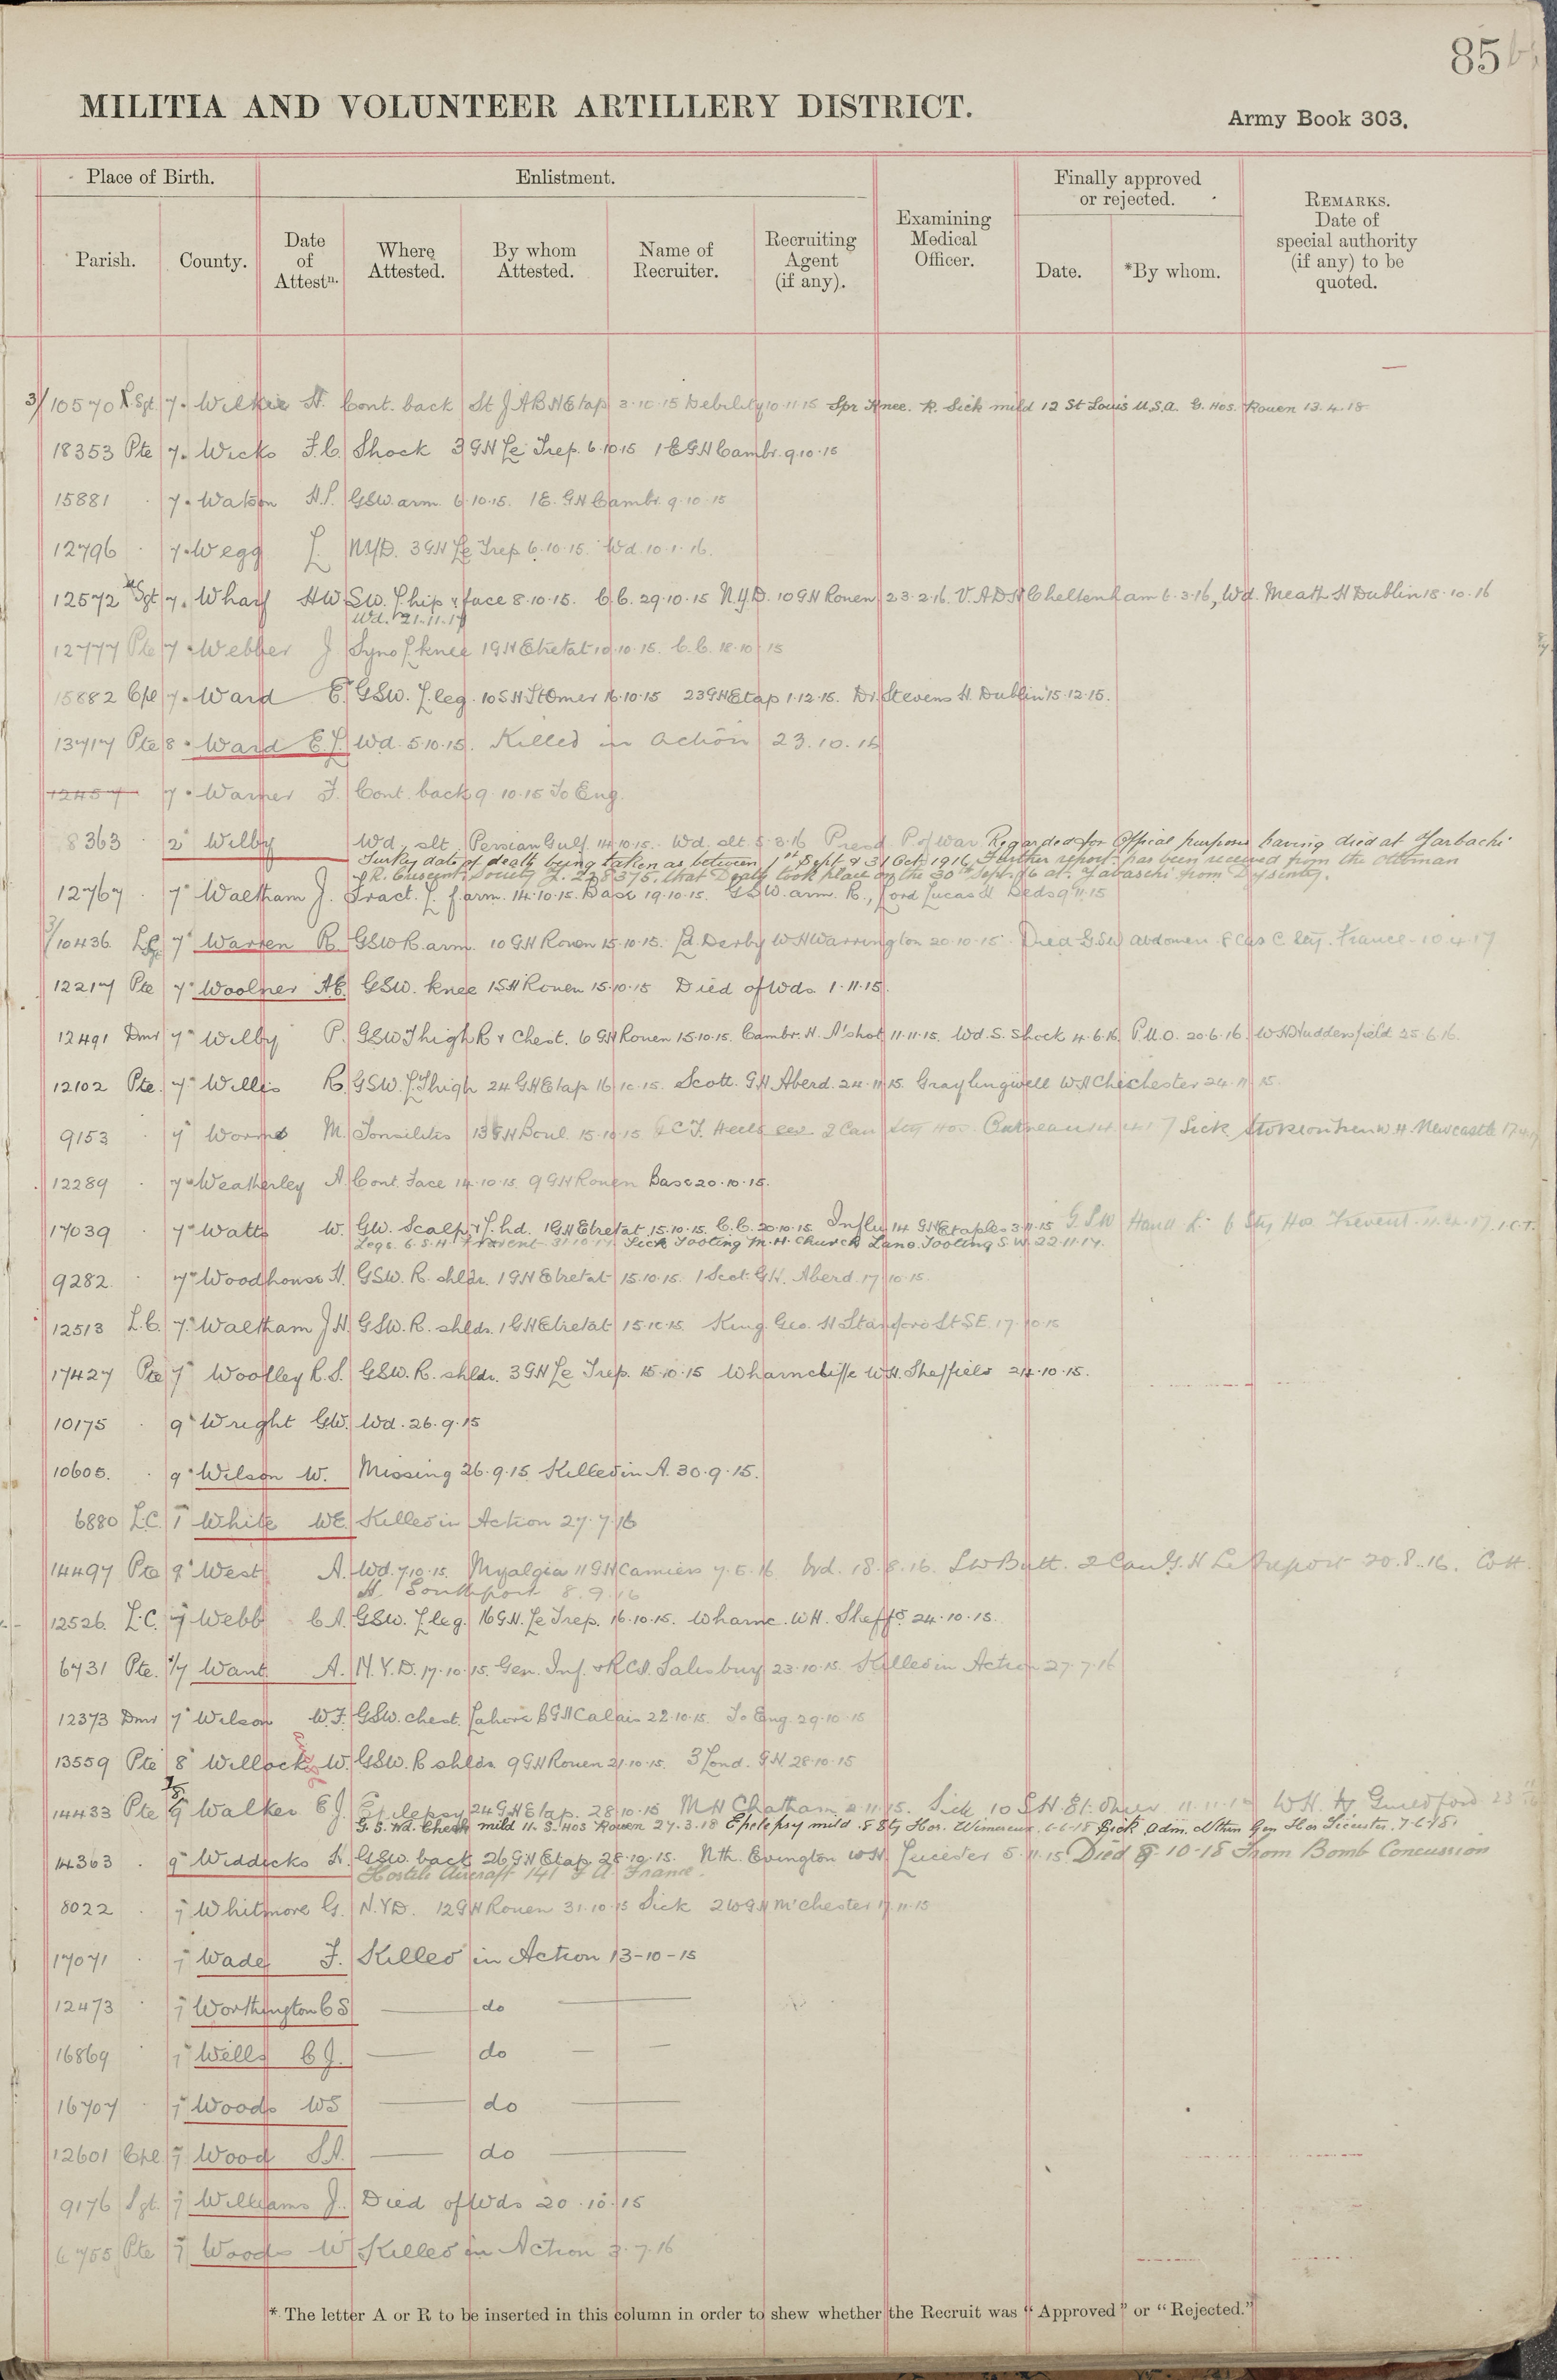 85
MILITIA AND VOLUNTEER ARTILLERY DISTRICT.
Army Book 303.
Place of Birth.
Enlistment.
Finally approved or rejected.
Parish.
County.
Date of Attestn.
Where Attested.
By whom Attested.
Name of Recruiter.
Recruiting Agent (if any).
Examining Medical Officer.
Date.
*By whom.
REMARKS. Date of special authority (if any) to be quoted.
3/10570 L.Sgt 7. Wilkie H. Cont. back St J A B H Etap 3.10.15 Debility 10.11.15 Spr Knee. R. Sick mild 12 St Louis U.S.A. G. Hos. Rouen 13.4.18
18353 Pte 7. Wicks F.C. Shock 3 GH Le Trep. 6.10.15 1 E GH Cambr. 9.10.15
15881 . 7. Watson H.P. GSW arm 6.10.15. 1 E. GH Cambr. 9.10.15
12796 . 7. Wegg L. NYD. 3 GH Le Trep 6.10.15. Wd. 10.1.16.
12572 Sgt 7. Wharf HW SW. L hip & face 8.10.15. C.C. 29.10.15 N.Y.D. 10 GH Rouen 23.2.16. V.A.D.H Cheltenham 6.3.16, Wd. Meath H Dublin 18.10.16
Wd. 21.11.17
12777 Pte 7. Webber J Syno L knee 19 H Etretat 10.10.15. C.C. 18.10.15
15882 Cpl 7. Ward E. GSW. L leg. 10 S H St Omer 16.10.15 23 GH Etap 1.12.15. Dr. Stevens H. Dublin 15.12.15.
13717 Pte 8. Ward E.J. Wd. 5.10.15. Killed in Action 23.10.16
12457 7. Warner F. Cont. back 9.10.15 To Eng.
8363 . 2 Wilby Wd. slt. Persian Gulf. 14.10.15. Wd. slt. 5.3.16 Presd P of War Regarded for Offical purposes having died at Yarbachi
Turkey date of death being taken as between 1st Sept & 31 Oct 1916. Further report has been received from the Ottoman
R. Cuscent Society that Death took place on the 30th Sept. 16 at Yabaschi from Dysintry.
12767 . 7 Waltham J. Fract. L. f.arm. 14.10.15. Base 19.10.15. GSW. arm. R., Lord Lucas H Beds 9.11.15
3/10436 7 Warren R. GSW R. arm. 10 GH Rouen 15.10.15. Ld. Derby W H Warrington 20.10.15. Died GSW Abdomen 8 Cas C. Stn. France 10.4.17
12217 Pte 7 Woolner AE. GSW. knee 1 S H Rouen 15.10.15 Died of Wds 1.11.15
12491 Dmr 7 Wilby P. GSW Thigh R & Chest. 6 GH Rouen 15.10.15. Cambr. H. A'shot 11.11.15. Wd. S. Shock 4.6.16. P.U.O. 20.6.16. W H Huddersfield 25.6.16.
12102 Pte. 7 Willis R. GSW. L Thigh 24 GH Etap 16.10.15. Scott. GH Aberd. 24.11.15. Graylingwell W H Chichester 24.11.15.
9153 . 7 Worms M. Tonsilitis 13 GH Boul. 15.10.15 I C T. Heels 2 Can Sty Hos. Sick Newcastle
12289 . 7 Weatherley A Cont. Face 14.10.15. 9 GH Rouen Base 20.10.15.
17039 . 7 Watts W. GW. Scalp & L. hd. 1 GH Etretat 15.10.15. C.C. 20.10.15. Influ 14 GH Etaples 3.11.15 GSW Hand L. 6 Sty Hos Frevent 11.4.17. I.C.T.
Legs. 6.S.H. Frevent 31.10.17. Sick Tooting M.H. Church Lane. Tooting S.W. 22.11.17.
9282 . 7 Woodhouse H. GSW. R. shldr. 1 GH Etretat 15.10.15. 1 Scot. GH. Aberd. 17.10.15.
12513 L.C. 7. Waltham J H. GSW. R. shldr. 1 GH Etretat 15.10.15. King Geo. H Stamford St SE. 17.10.15
17427 Pte 7 Woolley R.S. GSW. R. shldr. 3 GH Le Trep. 15.10.15 Wharncliffe W H. Sheffield 24.10.15.
10175 . 9 Wright GW. Wd. 26.9.15
10605. . 9 Wilson W. Missing 26.9.15. Killed in A. 30.9.15.
6880 L.C. 1 White WE. Killed in Action 27.7.16
14497 Pte 9 West A. Wd. 7.10.15. Myalgia 11 GH Camiers 7.5.16 Wd. 18.8.16. S W Butt. 2 Can G.H Le Treport 20.8.16. Cott.
H. Southport 8.9.16
12526. L.C. 7 Webb C A. GSW. L leg. 16 GH. Le Trep. 16.10.15. Wharnc. W H. Sheffd. 24.10.15.
6731 Pte. 1/7 Want A. N.Y.D. 17.10.15. Gen. Inf. Salisbury 23.10.15. Killed in Action 27.7.16
12373 Dmr 7 Wilson W.F. GSW. chest. Lahore B GH Calais 22.10.15. To Eng. 29.10.15
13559 Pte 8 Willock W. GSW. R shldr. 9 GH Rouen 21.10.15. 3 Lond. GH. 28.10.15
14433 Pte 9 Walker E J. Epilepsy 24 GH Etap. 28.10.15 M H Chatham 2.11.15. Sick 10 S H St. Omer W H. Guildford
G.S. Wd. Cheek mild 11. S. Hos Rouen 27.3.18 Epelepsy mild. 8 Sty Hos. Wimereux. 6-6-18 Sick Adm. Nthn Gen Hos Leicester. 7-6-18.
14363 . 9 Widdicks A. GSW. back 26 GH Etap. 28.10.15. Nth. Evington W H. Leicester 5.11.15. Died 9-10-18 From Bomb Concussion
Hostile Aircraft 141 F A. France.
8022 . 7 Whitmore G. N.Y.D. 12 GH Rouen 31.10.15 Sick 2 W GH M'chester 17.11.15
17071 . 7 Wade F. Killed in Action 13-10-15
12473 . 7 Worthington C S do
16869 . 7 Wells C J. do
16707 . 7 Woods WS do
12601 Cpl 7 Wood do
9176 Sgt. 7 Williams J. Died of Wds 20.10.15
6755 Pte 7 Woods W Killed in Action 3.7.16
* The letter A or R to be inserted in this column in order to shew whether the Recruit was "Approved" or "Rejected."